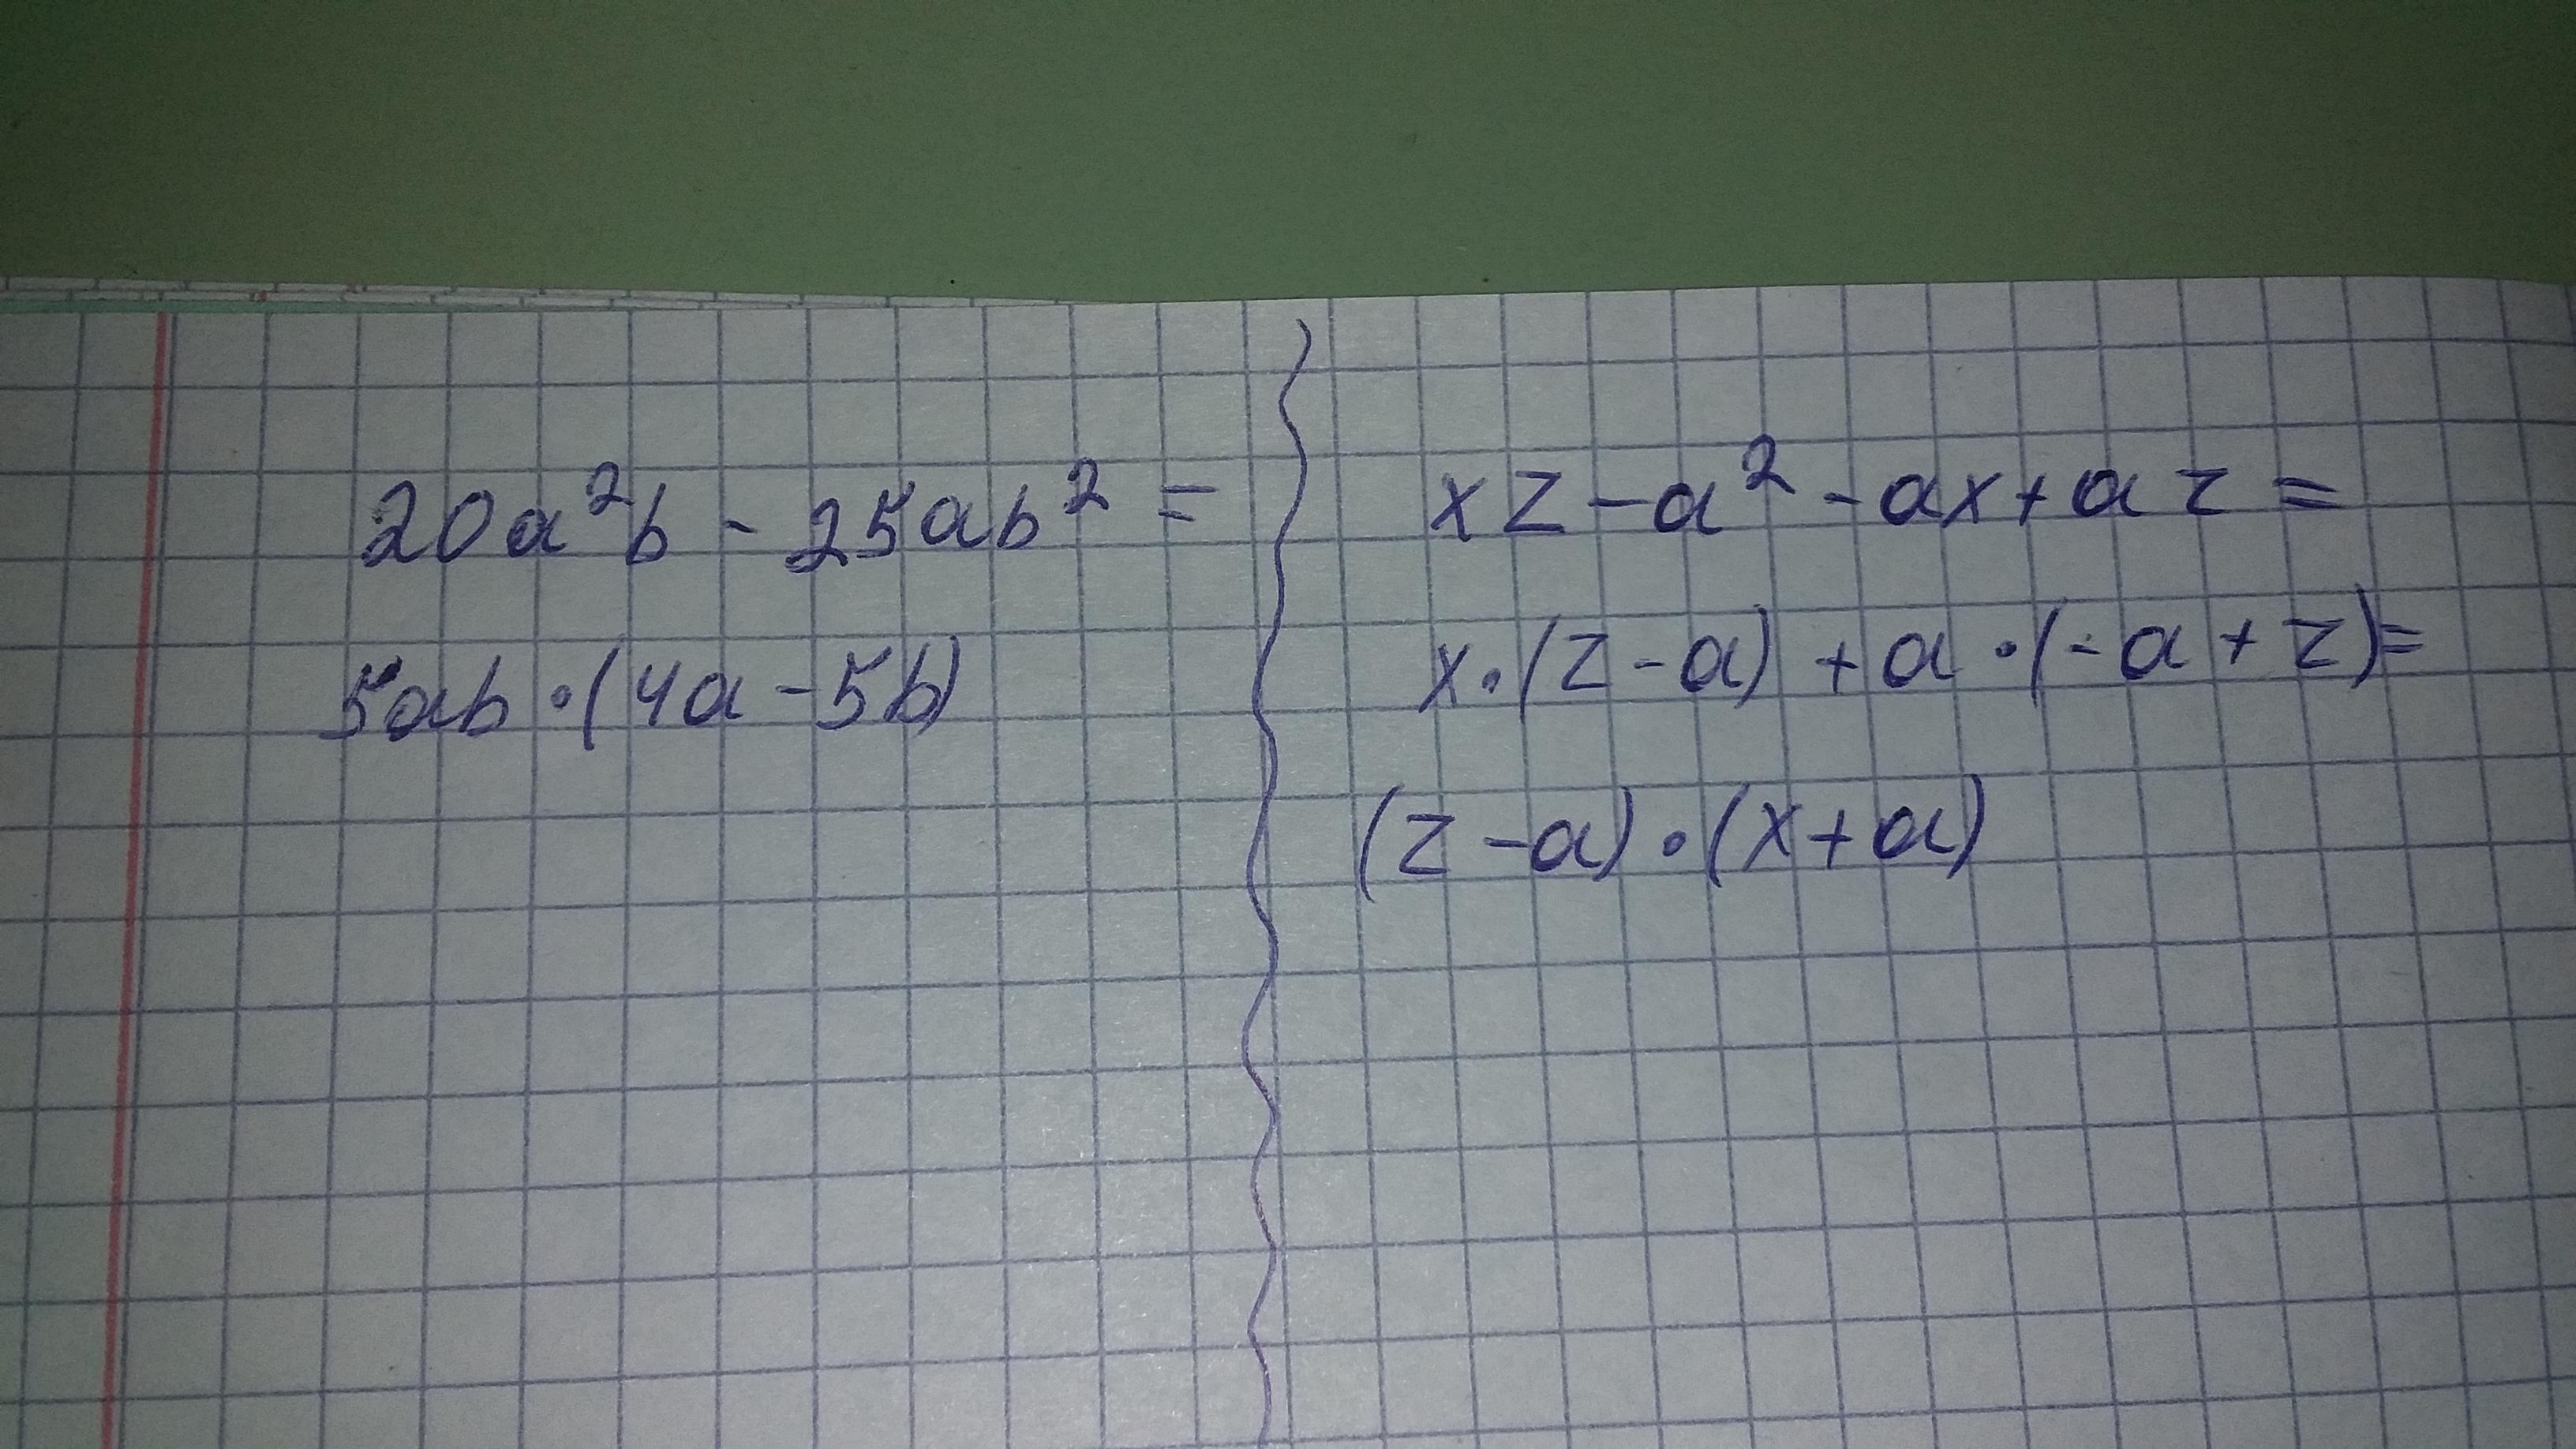 20a²b - 25ab² =
5ab · (4a - 5b)
xz - a² - ax + az =
x · (z - a) + a · (-a + z) =
(z - a) · (x + a)